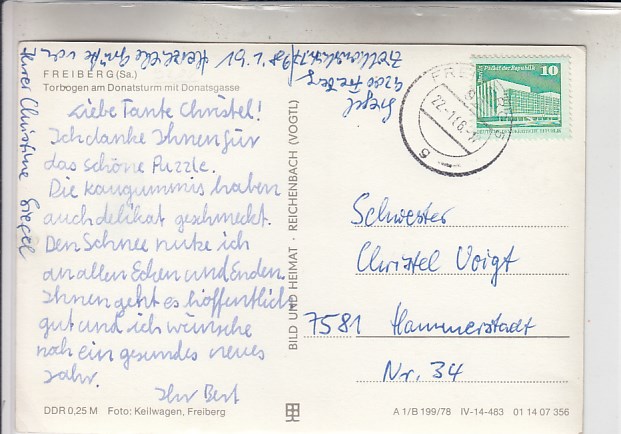 FREIBERG (Sa.)
Torbogen am Donatsturm mit Donatsgasse
Liebe Tante Christel!
Ich danke Ihnen für
das schöne Puzzle.
Die kaugummis haben
auch delikat geschmeckt.
Den Schnee nutze ich
an allen Ecken und Enden.
Ihnen geht es hoffentlich
gut und ich wünsche
noch ein gesundes neues
Jahr.
Ihr Bert
Herzliche Grüße von
Ihrer Christine Siegel
Siegel
9200 Freiberg
BILD UND HEIMAT · REICHENBACH (VOGTL)
10
Palast der Republik
DEUTSCHE DEMOKRATISCHE REPUBLIK
Schwester
Christel Voigt
7581 Hammerstadt
Nr. 34
DDR 0,25 M Foto: Keilwagen, Freiberg
A 1/B 199/78 IV-14-483 01 14 07 356